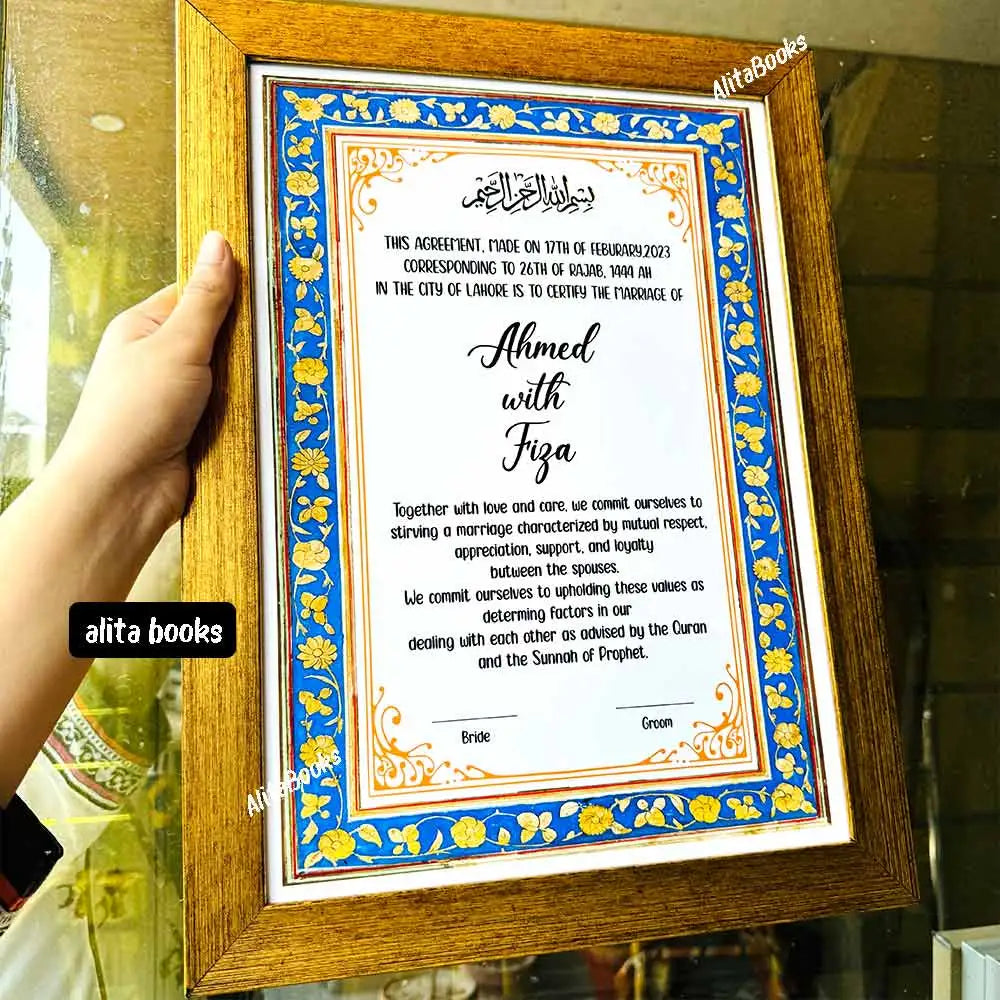 AlitaBooks
بسم الله الرحمن الرحيم
THIS AGREEMENT, MADE ON 17TH OF FEBURARY,2023
CORRESPONDING TO 26TH OF RAJAB, 1444 AH
IN THE CITY OF LAHORE IS TO CERTIFY THE MARRIAGE OF
Ahmed
with
Fiza
Together with love and care, we commit ourselves to
stirving a marriage characterized by mutual respect,
appreciation, support, and loyalty
butween the spouses.
We commit ourselves to upholding these values as
determing factors in our
dealing with each other as advised by the Quran
and the Sunnah of Prophet.
alita books
Bride
Groom
AlitaBooks